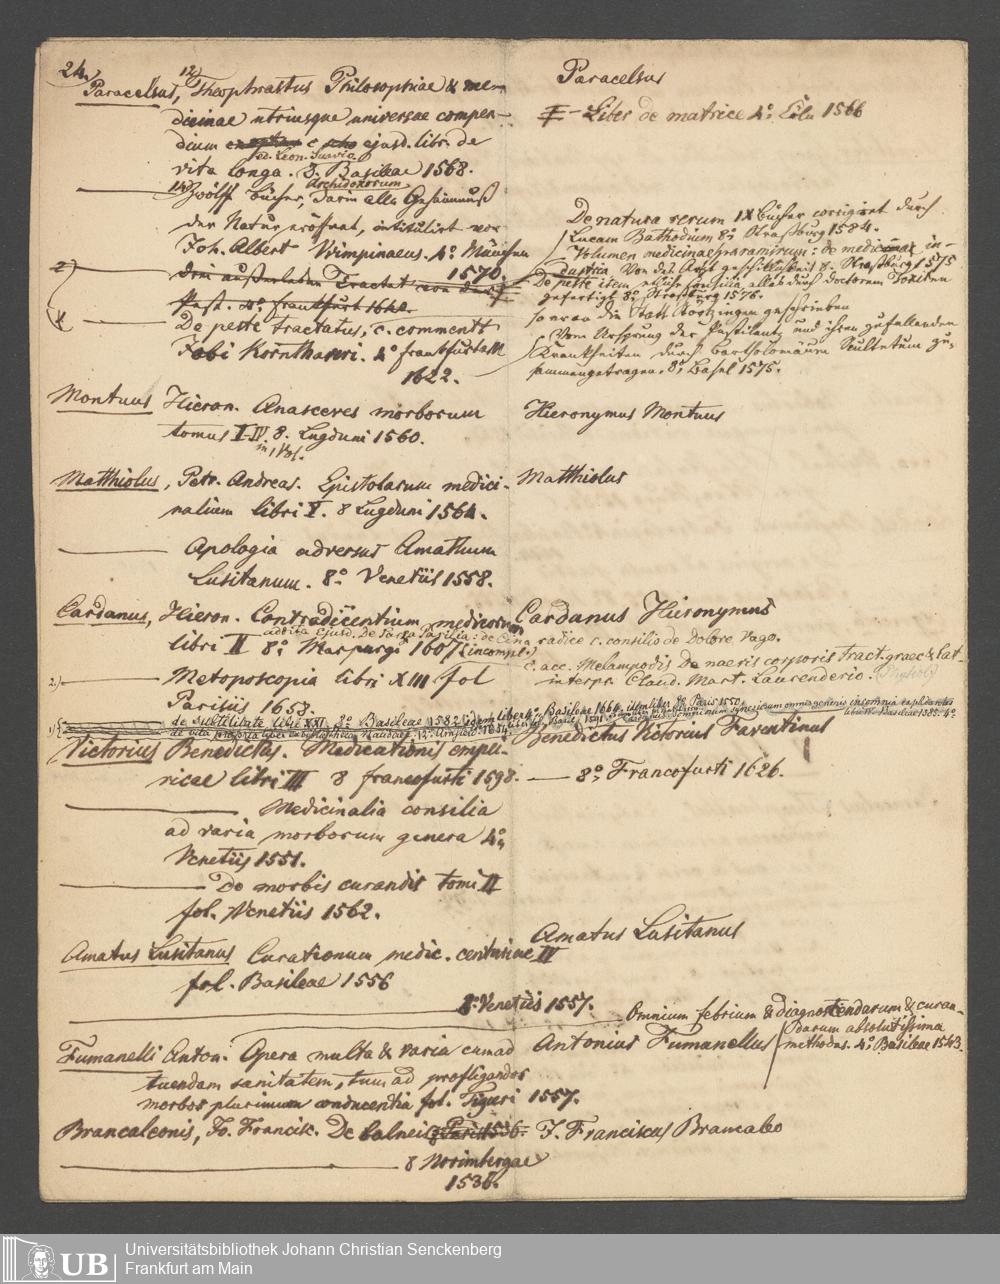 24.
12) Paracelsus, Theophrastus Philosophiae & me-
dicinae utriusque universae compen-
dium c ejusd. libr. de
ed. Leon. Suavio
vita longa. 8. Basileae 1568.
Archidoxorum
14) Zwölff Bücher, darin alle Geheimnuß
der Natur eröffnet, intitulirt von
Joh. Albert Wimpinaeus. 4° München
1570.
2) drei außerlesen Tractat von der
Pest. 4° frankfurt
De peste tractatus, c. comment
Tobi Kornthaueri. 4° frankfurt a M
1622.
Montuus Hieron. Anasceves morborum
tomus I-IV. 8. Lugduni 1560.
in 1 Vol.
Matthiolus, Petr. Andreas. Epistolarum medici-
nalium libri V. 8 Lugduni 1564.
Apologia adversus Amathum
Lusitanum. 8° Venetiis 1558.
Cardanus, Hieron. Contradicentium medicorum
addita ejusd. De Sarza Parilia: de Cina
libri II 8° Marpurgi 1607 (incompl.)
2.) Metoposcopia libri XIII fol
Parisiis 1658.
1) de Subtilitate libri XXI 8° Basileae 1582. idem liber 4° Basileae 1664. idem liber 8° Paris 1550
de vita propria liber 12° 1654.
Victorius Benedictus. Medicationis empi-
ricae libri III 8 francofurti 1598.
Medicinalia consilia
ad varia morborum genera 4°
Venetiis 1551.
De morbis curandis tomi II
fol. Venetiis 1562.
Amatus Lusitanus Curationum medic. centuriae IV
fol. Basileae 1556
8° Venetiis 1557.
Fumanelli Anton. Opera multa & varia cum ad
tuendam sanitatem, tum ad profligandos
morbos plurimum conducentia fol. Tiguri 1557.
Brancaleonis, Jo. Francisc. De balneis Paris 1536.
8 Norimbergae
1536.
Paracelsus
Liber de matrice 4° Cöln 1566
De natura rerum IX Bücher corrigirt durch
Lucam Bathodium 8° Straßburg 1584.
Volumen medicinae paramirum: de medica in-
dustria. Von des Arzt geschicklichkeit 8. Straßburg 1575
De peste item etliche Consilia, alles durch Doctorem Toxiten
gefertigt 8° Straßburg 1576.
so er an die Statt Stertzingen geschrieben
Vom Ursprung der Pestilentz und ihren zufallenden
Krankheiten durch Bartholomäum Scultetum zu-
sammengetragen. 8° Basel 1575.
Hieronymus Montuus
Matthiolus
Cardanus Hieronymus
radice c. consilio de dolore vago.
c. acc. Melampodis De naevis corporis tract. graec & lat
interpr. Claud. Mart. Laurenderio. (Physiol)
Somniorum synesiorum omnis generis insomnia explicantes
libri IV Basileae 1585. 4°
Benedictus Victorius Faventinus
8° Francofurti 1626.
Amatus Lusitanus
Omnium febrium & diagnoscendarum & curan-
darum absolutissima
methodus. 4° Basileae 1543.
Antonius Fumanellus
J. Franciscus Brancaleo
UB
Universitätsbibliothek Johann Christian Senckenberg
Frankfurt am Main